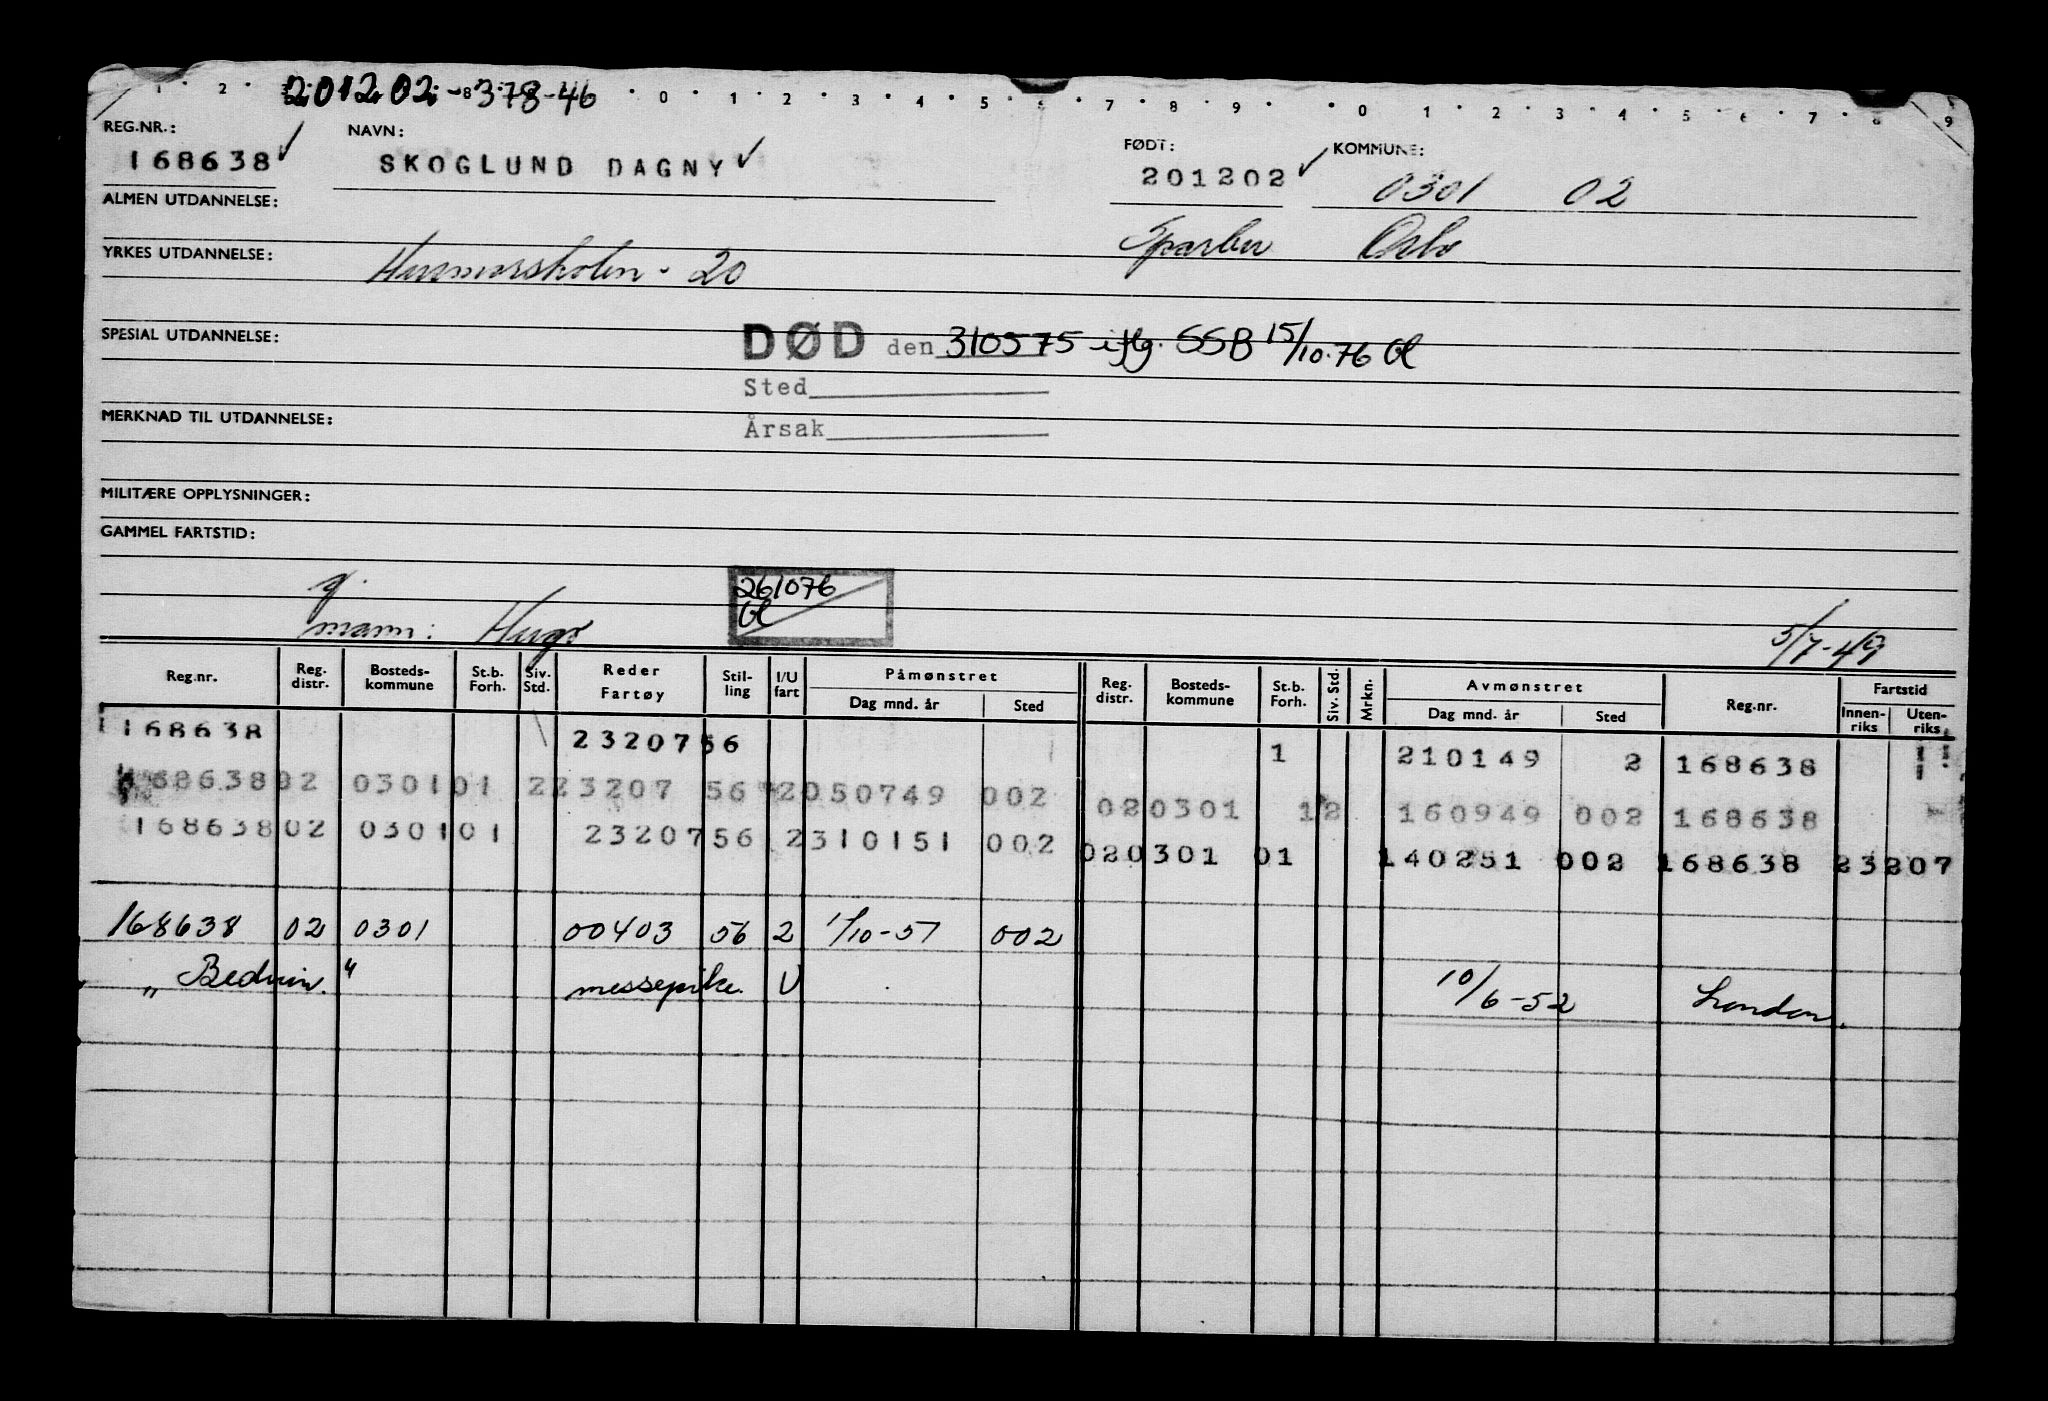 201202-378-46
1 2 8 0 1 2 3 4 5 6 7 8 9 0 1 2 3 4 5 6 7 8 9
REG.NR.: NAVN: FØDT: KOMMUNE:
168638 SKOGLUND DAGNY 201202 0301 02
ALMEN UTDANNELSE:
Sparbu Oslo
YRKES UTDANNELSE: Husmorskolen - 20
SPESIAL UTDANNELSE: DØD den 310575 iflg. SSB 15/10.76
Sted
MERKNAD TIL UTDANNELSE: Årsak
MILITÆRE OPPLYSNINGER:
GAMMEL FARTSTID:
g. 261076
mann: Hugo 5/7-49
Reg.nr. Reg. distr. Bosteds-kommune St.b. Forh. Siv. Std. Reder Fartøy Stil-ling I/U fart Påmønstret Dag mnd. år Sted Reg. distr. Bosteds-kommune St.b. Forh. Siv. Std. Mrkn. Avmønstret Dag mnd. år Sted Reg.nr. Fartstid Innen-riks Uten-riks
168638 2320756 1 210149 2 168638
16863802 030101 223207 56 2050749 002 020301 12 160949 002 168638
16863802 030101 2320756 2310151 002 020301 01 140251 002 168638 23207
168638 02 0301 00403 56 2 1/10-51 002
"Beduin." messepike U 10/6-52 London.